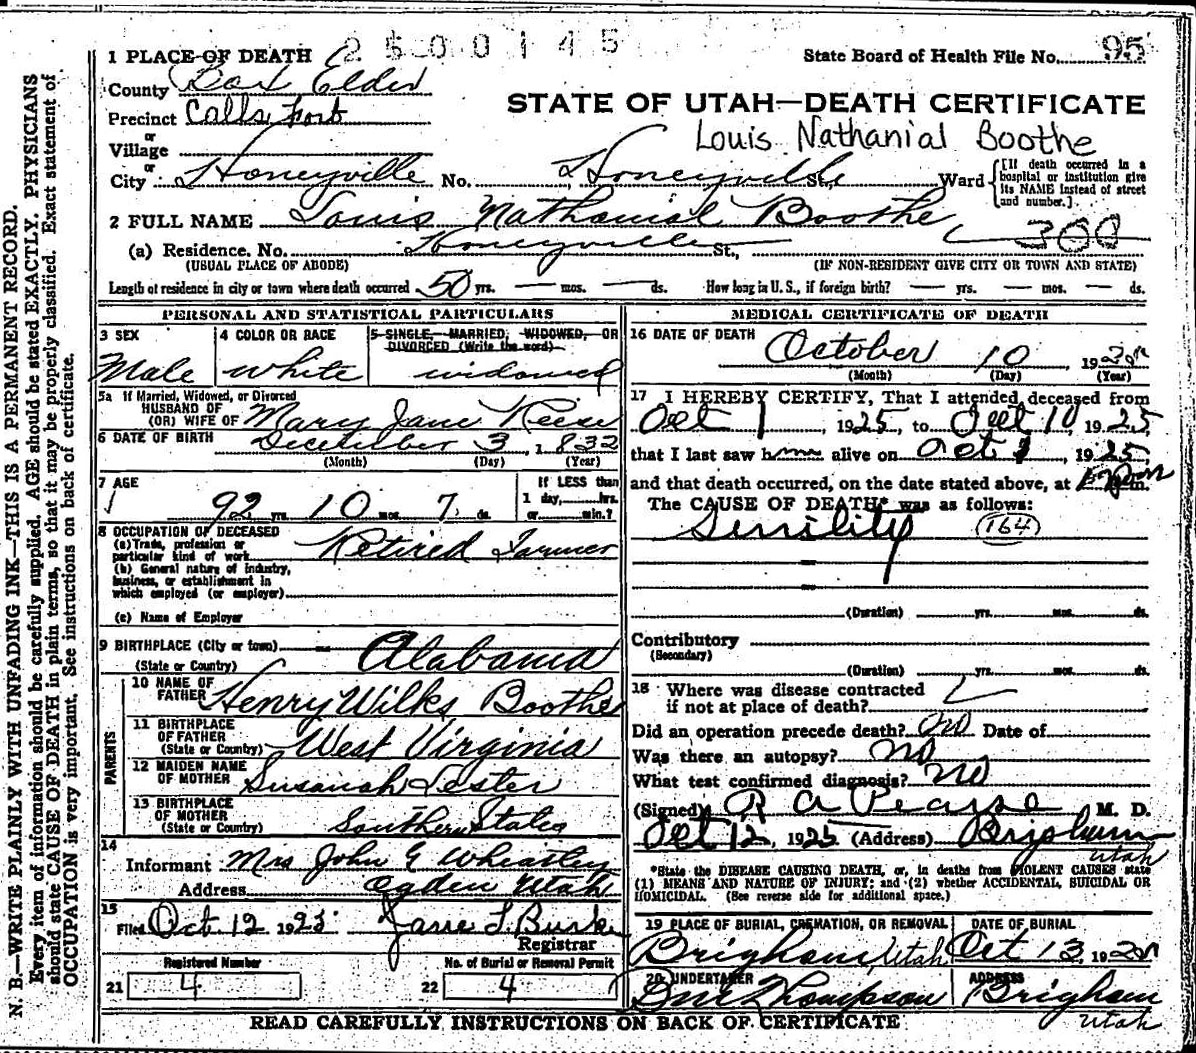 2500145
1 PLACE OF DEATH
State Board of Health File No. 95
County Box Elder
STATE OF UTAH—DEATH CERTIFICATE
Precinct Calls Fort
Louis Nathanial Boothe
or
Village
or
City Honeyville No. Honeyville St., Ward
[If death occurred in a hospital or institution give its NAME instead of street and number.]
2 FULL NAME Louis Nathanial Boothe
300
(a) Residence. No. Honeyville St.,
(USUAL PLACE OF ABODE) (IF NON-RESIDENT GIVE CITY OR TOWN AND STATE)
Length of residence in city or town where death occurred 50 yrs. — mos. — ds. How long in U.S., if foreign birth? — yrs. — mos. — ds.
PERSONAL AND STATISTICAL PARTICULARS
3 SEX 4 COLOR OR RACE 5 SINGLE, MARRIED, WIDOWED, OR DIVORCED (Write the word)
Male White widowed
5a If Married, Widowed, or Divorced
HUSBAND OF
(OR) WIFE OF Mary Jane Reese
6 DATE OF BIRTH December 3, 1832
(Month) (Day) (Year)
7 AGE If LESS than
1 day, hrs.
92 yrs. 10 mos. 7 ds. or min.?
8 OCCUPATION OF DECEASED
(a) Trade, profession or
particular kind of work Retired Farmer
(b) General nature of industry,
business, or establishment in
which employed (or employer)
(c) Name of Employer
9 BIRTHPLACE (City or town)
(State or Country) Alabama
PARENTS
10 NAME OF
FATHER Henry Wilks Boothe
11 BIRTHPLACE
OF FATHER
(State or Country) West Virginia
12 MAIDEN NAME
OF MOTHER Susanah Lester
13 BIRTHPLACE
OF MOTHER
(State or Country) Southern States
14
Informant Mrs John E Wheatley
Address Ogden Utah
15
Filed Oct 12 1925
Registrar
Registered Number No. of Burial or Removal Permit
21 4 22 4
MEDICAL CERTIFICATE OF DEATH
16 DATE OF DEATH
October 10 192
(Month) (Day) (Year)
17 I HEREBY CERTIFY, That I attended deceased from
Oct 1, 1925, to Oct 10, 1925
that I last saw h alive on Oct 1, 1925
and that death occurred, on the date stated above, at m.
The CAUSE OF DEATH* was as follows:
Senility (164)
(Duration) yrs. mos. ds.
Contributory
(Secondary)
(Duration) yrs. mos. ds.
18 Where was disease contracted
if not at place of death?
Did an operation precede death? no Date of
Was there an autopsy? no
What test confirmed diagnosis? no
(Signed) R A Pearse M. D.
Oct 12, 1925 (Address) Brigham
Utah
*State the DISEASE CAUSING DEATH, or, in deaths from VIOLENT CAUSES state
(1) MEANS AND NATURE OF INJURY; and (2) whether ACCIDENTAL, SUICIDAL OR
HOMICIDAL. (See reverse side for additional space.)
19 PLACE OF BURIAL, CREMATION, OR REMOVAL DATE OF BURIAL
Brigham, Utah Oct 13, 192
20 UNDERTAKER ADDRESS
Thompson Brigham
Utah
READ CAREFULLY INSTRUCTIONS ON BACK OF CERTIFICATE
N. B.—WRITE PLAINLY WITH UNFADING INK—THIS IS A PERMANENT RECORD.
Every item of information should be carefully supplied. AGE should be stated EXACTLY. PHYSICIANS
should state CAUSE OF DEATH in plain terms, so that it may be properly classified. Exact statement of
OCCUPATION is very important. See instructions on back of certificate.